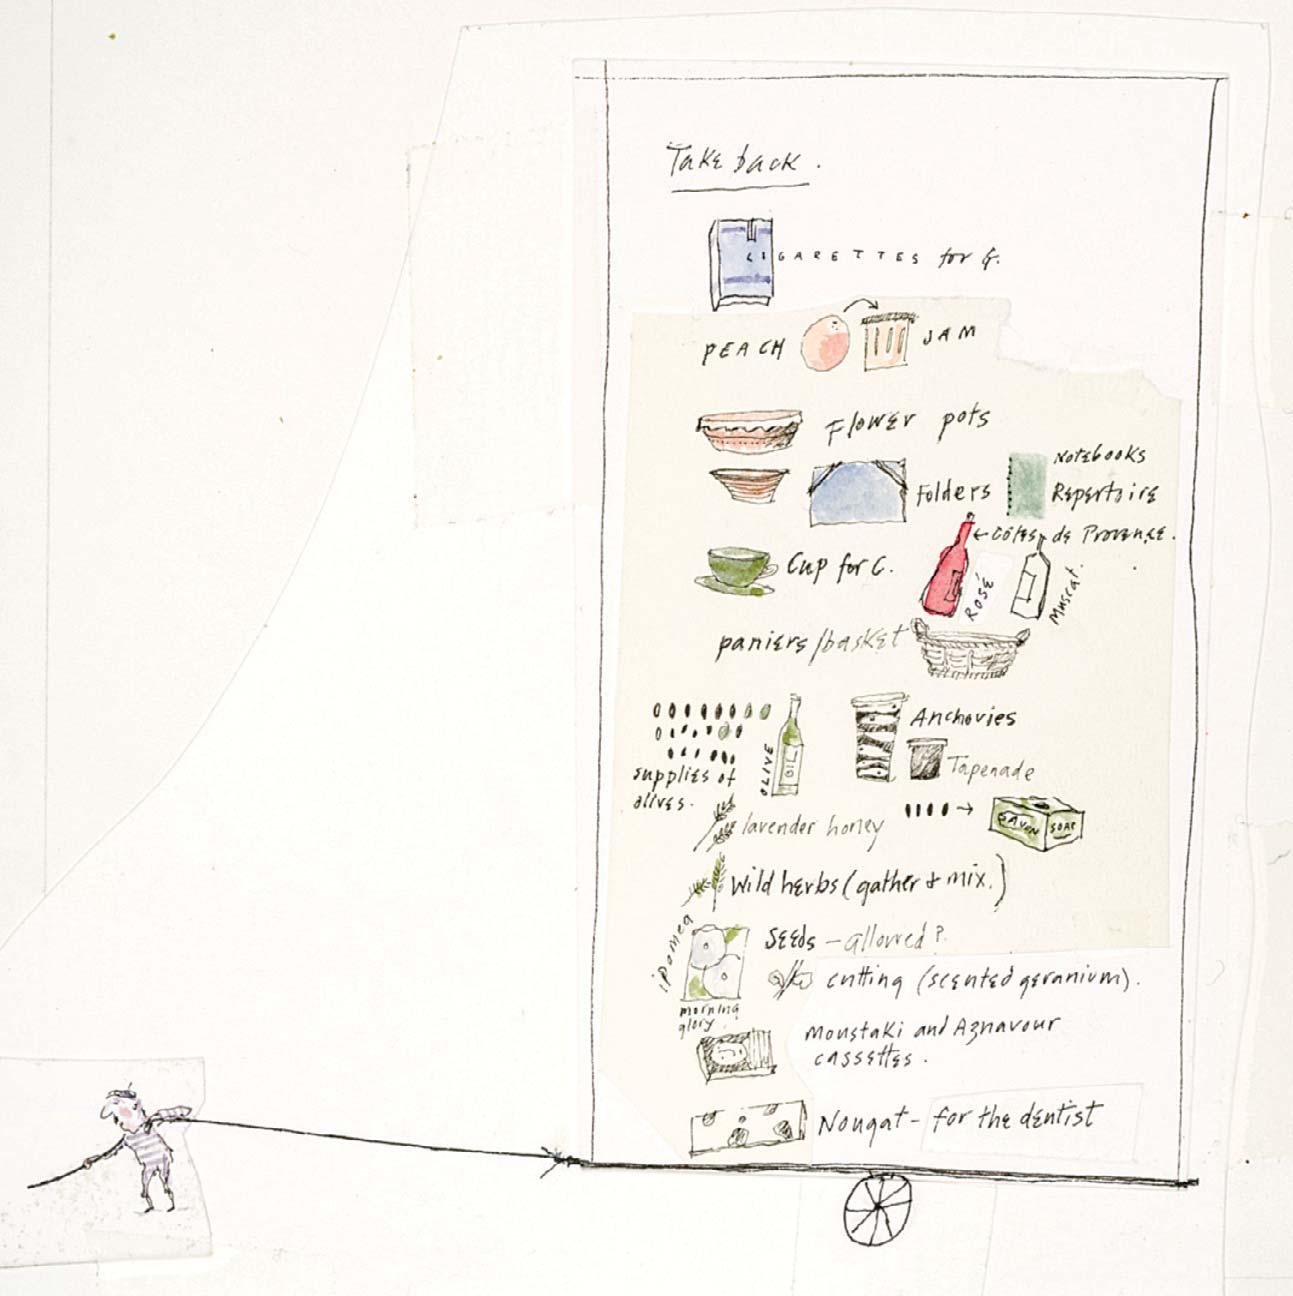 Take back.
CIGARETTES for G.
PEACH JAM
Flower pots
Folders
Notebooks
Repertoire
← Côtes de Provence.
ROSÉ
Muscat.
Cup for G.
paniers/basket
supplies of
olives.
OLIVE
OIL
Anchovies
Tapenade
lavender honey
SAVON
SOAP
Wild herbs (gather & mix.)
ipomea
morning
glory.
Seeds - allowed?
cutting (scented geranium).
Moustaki and Aznavour
cassettes.
Nougat - for the dentist